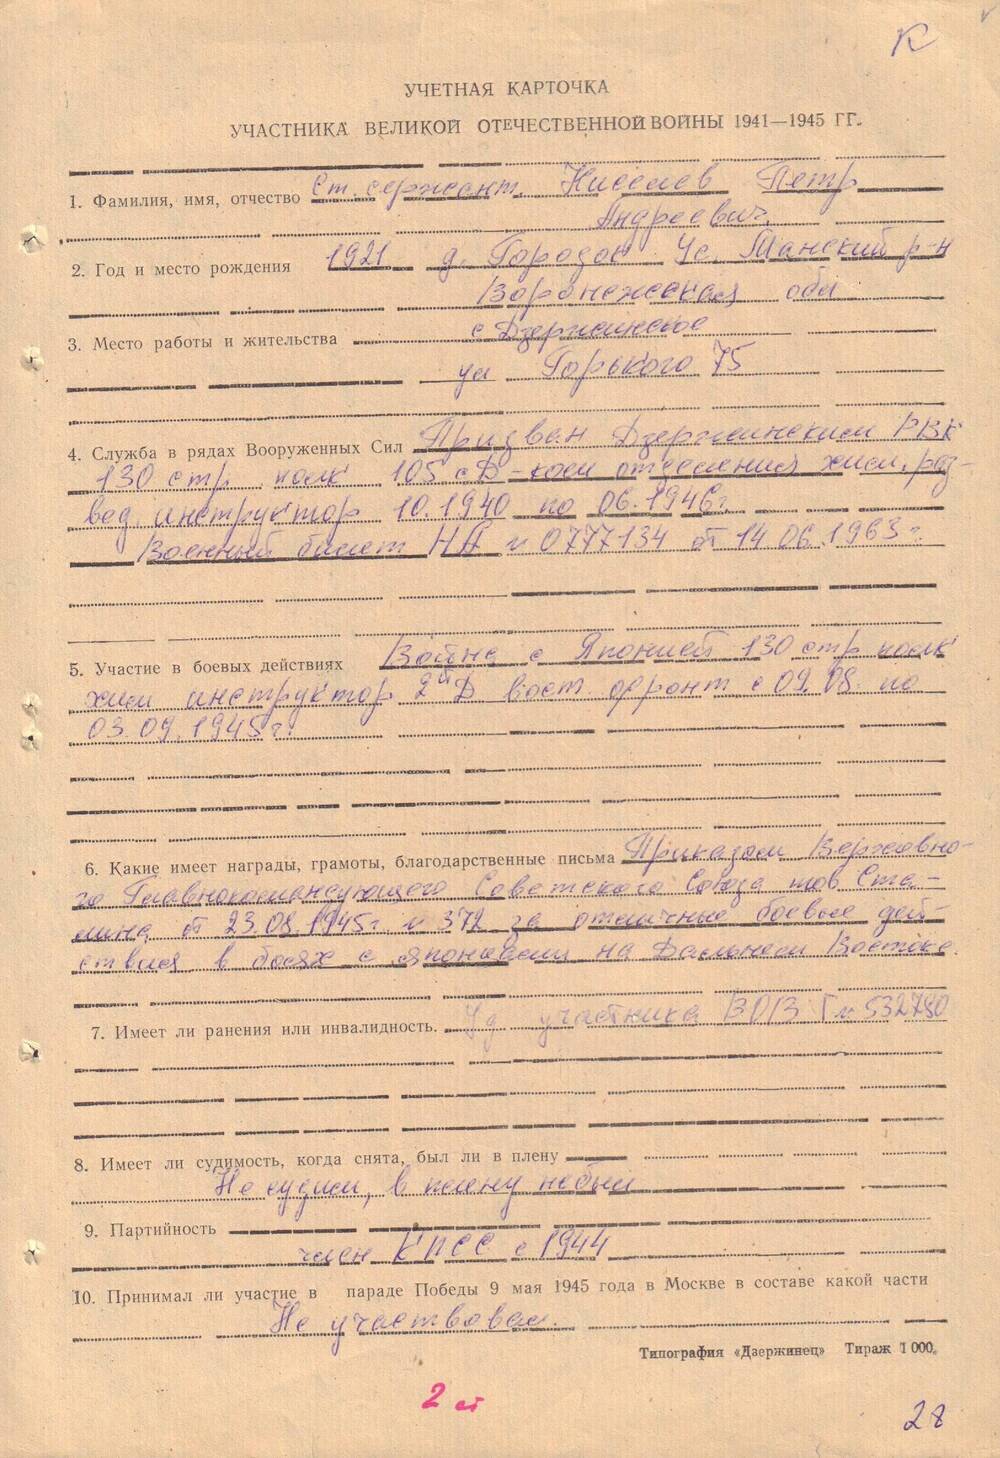 К
УЧЕТНАЯ КАРТОЧКА
УЧАСТНИКА ВЕЛИКОЙ ОТЕЧЕСТВЕННОЙ ВОЙНЫ 1941—1945 ГГ.
1. Фамилия, имя, отчество Ст. сержант Киселев Петр
Андреевич
2. Год и место рождения 1921 д. Городок Ус. Манский р-н
Воронежская обл
3. Место работы и жительства с Дзержинское
ул Горького 75
4. Служба в рядах Вооруженных Сил Призван Дзержинским РВК
130 стр. полк 105 сД - ком отделения хим. раз-
вед. инструктор 10.1940 по 06.1946г.
Военный билет НД № 0777134 от 14.06.1963г.
5. Участие в боевых действиях Война с Японией 130 стр полк
хим инструктор 2й Д вост. фронт с 09.08. по
03.09.1945г.
6. Какие имеет награды, грамоты, благодарственные письма Приказом Верховно-
го Главнокомандующего Советского Союза тов. Ста-
лина от 23.08.1945г. № 372 за отличные боевые дей-
ствия в боях с японцами на Дальнем Востоке.
7. Имеет ли ранения или инвалидность. Уд участника ВОВ Г № 532780
8. Имеет ли судимость, когда снята, был ли в плену
Не судим, в плену небыл
9. Партийность
член КПСС с 1944
10. Принимал ли участие в параде Победы 9 мая 1945 года в Москве в составе какой части
Не участвовал.
Типография «Дзержинец» Тираж 1 000.
2 ст
28